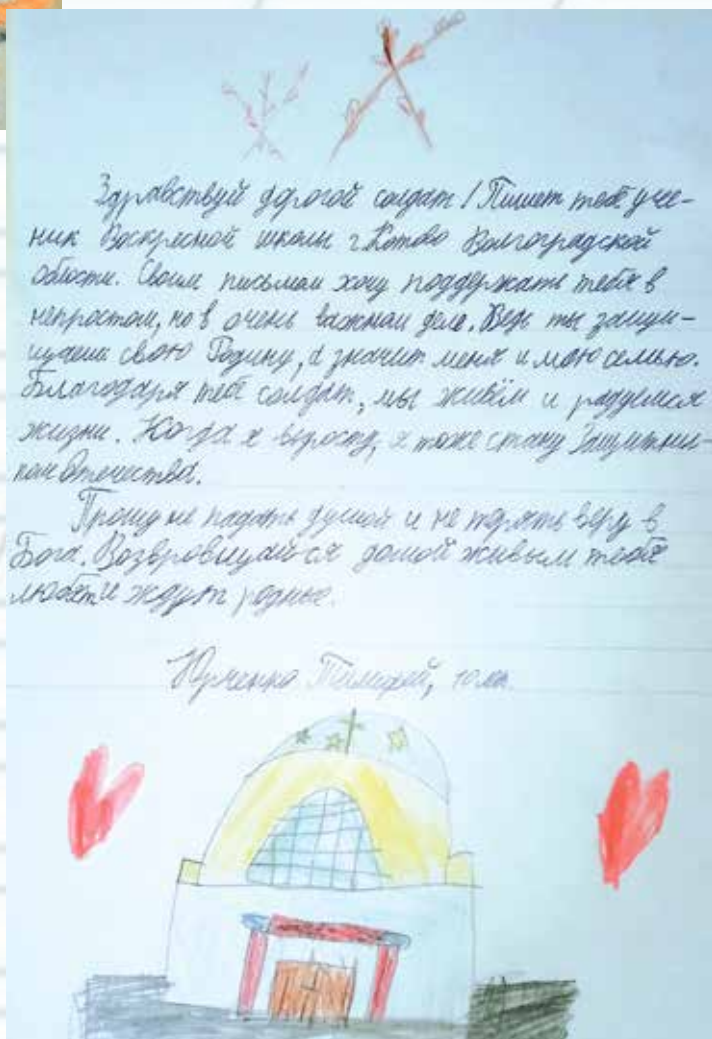 Здравствуй дорогой солдат! Пишет тебе уче-
ник Воскресной школы г. Котово Волгоградской
области. Своим письмом хочу поддержать тебя в
непростом, но в очень важном деле. Ведь ты защи-
щаеш свою Родину, а значит меня и мою семью.
Благодаря тебе солдат, мы живём и радуемся
жизни. Когда я вырасту, я тоже стану Защитни-
ком Отечества.
Прошу не падать духом и не терять веру в
Бога. Возвровщайся домой живым тебя
любят и ждут родные.
Юрченко Тимофей, 10 лет.